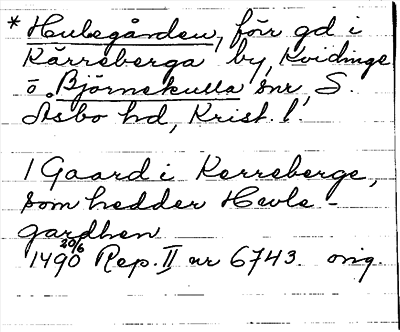 * Hulegården, förr gd i
Kärreberga by, Kvidinge
o. Björnekulla snr, S.
Åsbo hd, Krist. l.
1 Gaard i Kerreberge,
som hedder Hwle-
gardhen
1490 20/6 Rep. II nr 6743. orig.